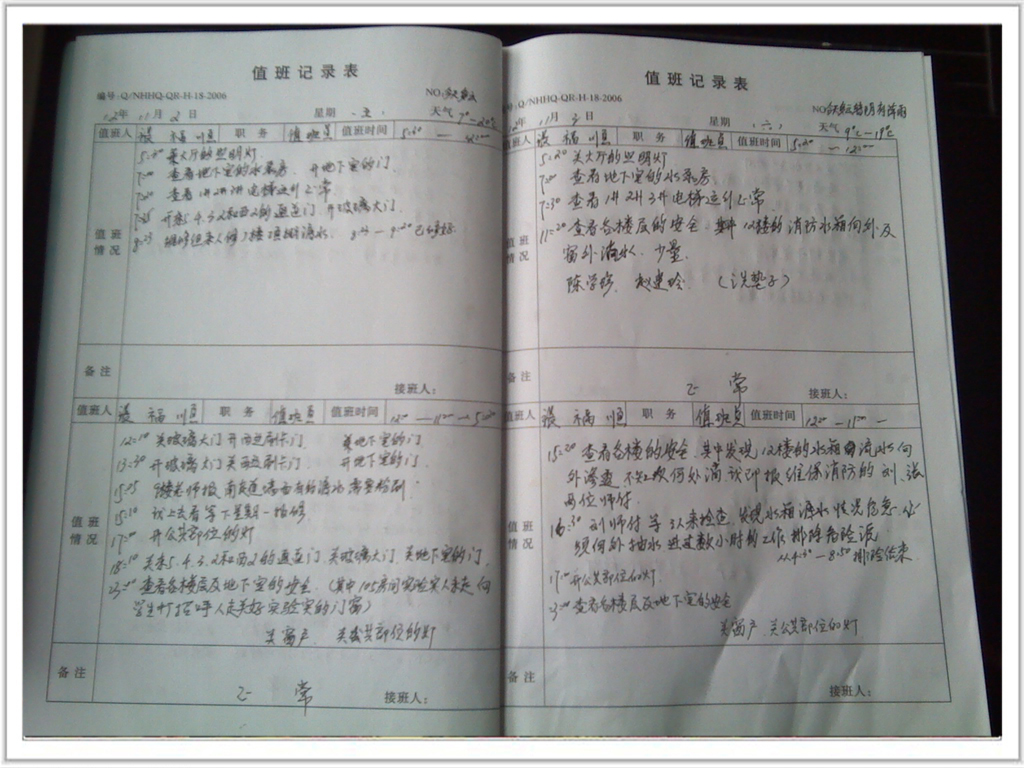 值班记录表
编号:Q/NHHQ-QR-H-18-2006 NO:
12年 11月 2日 星期 (五) 天气 9℃—20℃
值班人 张福顺 职务 值班员 值班时间 5:30 —
值班情况
5:30 关大厅的照明灯.
7:00 查看地下室的水泵房. 开地下室的门.
7:20 查看1#2#3#电梯运行正常
开东5.4.3.2和西2的通道门.开玻璃大门.
8:25 维修 楼顶 滴水. 8:25 — 9:20
备注
接班人:
值班人 张福顺 职务 值班员 值班时间 12:00 —
值班情况
12:10 关玻璃大门 开西边刷卡门 关地下室的门
13:30 开玻璃大门 关西边刷卡门 开地下室的门.
15:25
15:30 我上去看 等下星期一 维修
17:00 开公共部位的灯
18:10 关东5.4.3.2和西2的通道门.关玻璃大门.关地下室的门.
23:00 查看各楼层及地下室的安全. (其中105房间实验室人未走 向
学生打招呼人走关好实验室的门窗)
关窗户. 关公共部位的灯
备注 正常
接班人:
值班记录表
编号:Q/NHHQ-QR-H-18-2006 NO: 多云转阴有阵雨
12年 11月 3日 星期 (六) 天气 9℃—18℃
值班人 张福顺 职务 值班员 值班时间 5:30 — 12:00
值班情况
5:20 关大厅的照明灯
7:00 查看地下室的水泵房.
7:30 查看1#2#3#电梯运行正常
11:20 查看各楼层的安全. 其中12楼的消防水箱向外及
窗外滴水. 少量.
陈学修. 赵建玲. (洗垫子)
备注 正常
接班人:
值班人 张福顺 职务 值班员 值班时间 12:00 —
值班情况
15:20 查看各楼的安全.其中发现12楼的水箱 流水向
外渗透 不知 何处漏.我即报维保消防的刘.张
两位师付.
16:30 刘师付等3人来检查.发现水箱漏水情况危急.必
须向外抽水 进过数小时的工作 排除危险
从4:30—8:50排险结束.
17:00 开公共部位的灯.
23:00 查看各楼层及地下室的安全
关窗户.关公共部位的灯
备注
接班人: